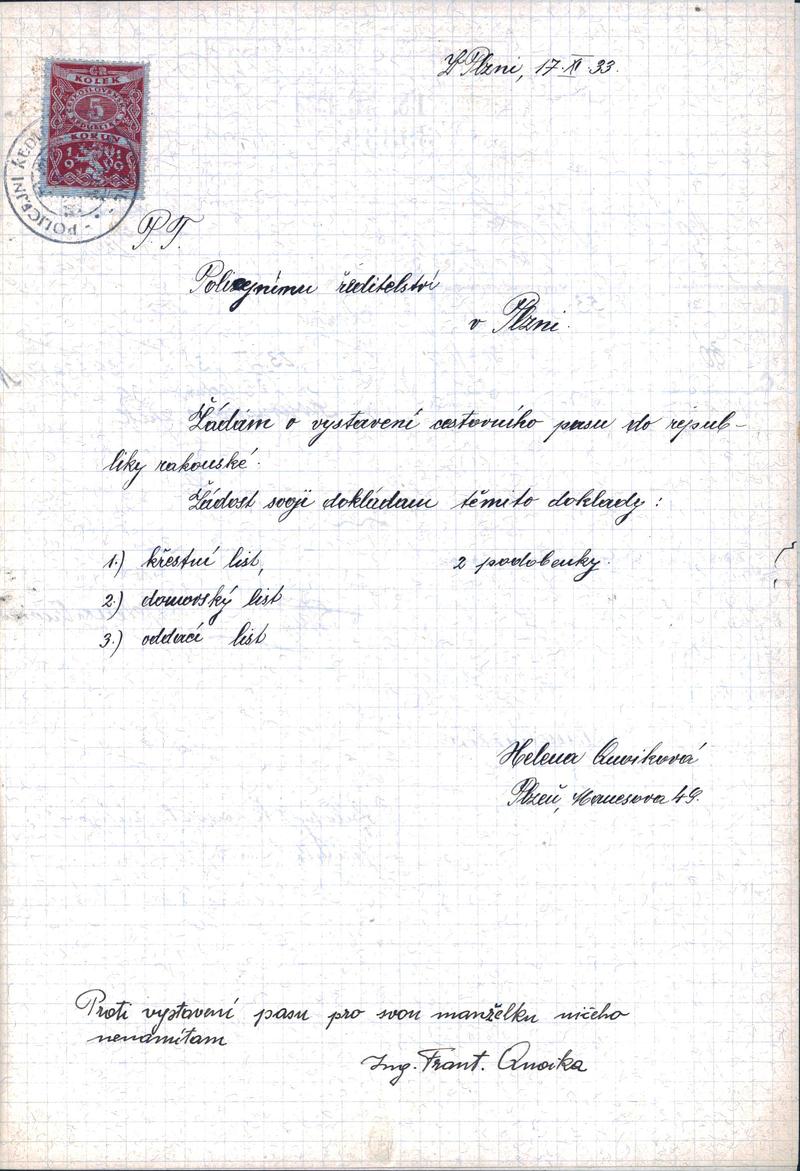 V Plzni, 17.XI.33.
ČR
KOLEK
5
KORUN
19 19
POLICEJNÍ ŘEDI
P. T.
Policejnímu ředitelství
v Plzni.
Žádám o vystavení cestovního pasu do repub-
liky rakouské.
Žádost svoji dokládám těmito doklady:
1.) křestní list, 2 podobenky.
2.) domovský list
3.) oddací list
Helena
Plzeň, Manesova 49.
Proti vystavení pasu pro svou manželku ničeho
nenamítam
Ing. Frant.